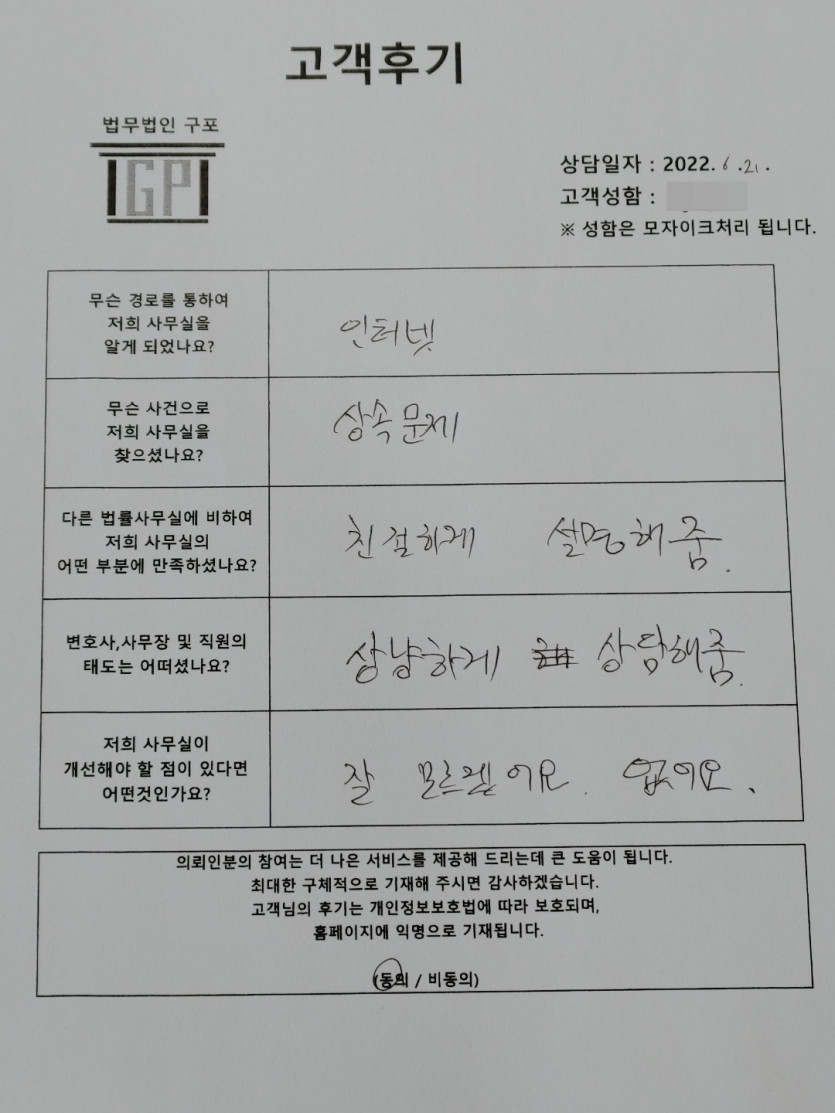 고객후기
법무법인 구포
GP
상담일자 : 2022. 6 .21.
고객성함 :
※ 성함은 모자이크처리 됩니다.
무슨 경로를 통하여
저희 사무실을
알게 되었나요?
인터넷
무슨 사건으로
저희 사무실을
찾으셨나요?
상속문제
다른 법률사무실에 비하여
저희 사무실의
어떤 부분에 만족하셨나요?
친절하게 설명해줌.
변호사,사무장 및 직원의
태도는 어떠셨나요?
상냥하게 상담해줌.
저희 사무실이
개선해야 할 점이 있다면
어떤것인가요?
잘 모르겠어요. 없어요.
의뢰인분의 참여는 더 나은 서비스를 제공해 드리는데 큰 도움이 됩니다.
최대한 구체적으로 기재해 주시면 감사하겠습니다.
고객님의 후기는 개인정보보호법에 따라 보호되며,
홈페이지에 익명으로 기재됩니다.
(동의 / 비동의)